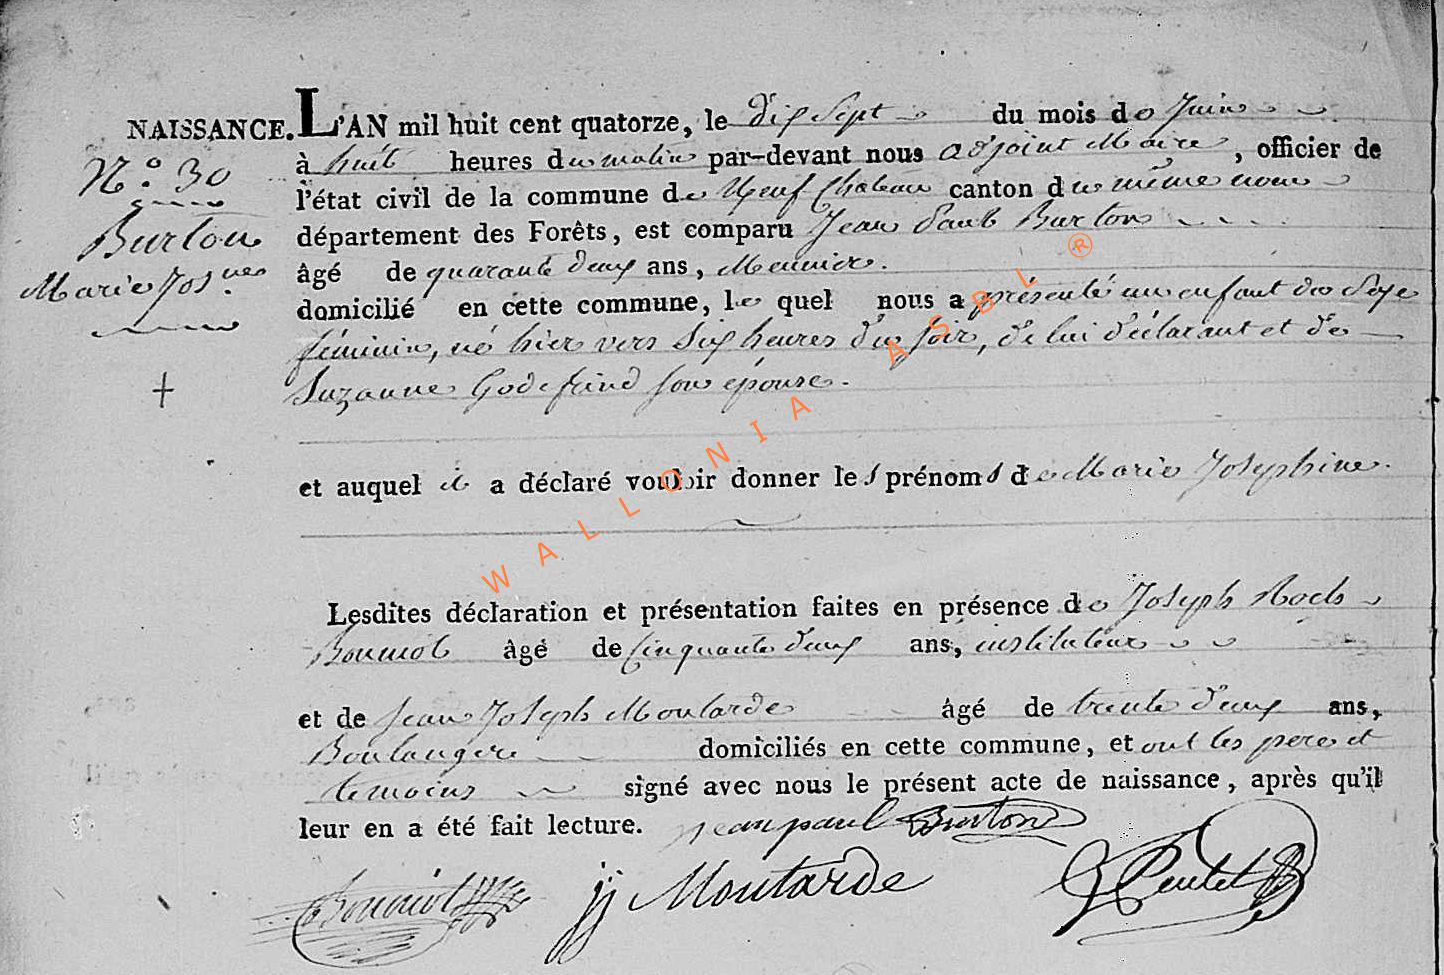 NAISSANCE. L'AN mil huit cent quatorze, le dix Sept du mois de Juin
N.º 30
à huit heures du matin par-devant nous adjoint Maire, officier de
l'état civil de la commune de Neuf Chateau canton du même nom
Burton
département des Forêts, est comparu Jean Paul Burton
Marie Jos.nes
âgé de quarante deux ans, Meunier.
domicilié en cette commune, le quel nous a présenté un enfant du Sexe
féminin, né hier vers Six heures du soir, de lui déclarant et de
+
Suzanne Godefrind son épouse.
et auquel il a déclaré vouloir donner les prénoms de Marie Josephine.
Lesdites déclaration et présentation faites en présence de Joseph Roch
Boumot âgé de Cinquante deux ans, instituteur
et de Jean Joseph Moutarde âgé de trente deux ans,
Boulangere domiciliés en cette commune, et ont les pere et
temoins signé avec nous le présent acte de naissance, après qu'il
leur en a été fait lecture. jean paul Burton
jj Moutarde
WALLONIA ASBL ®